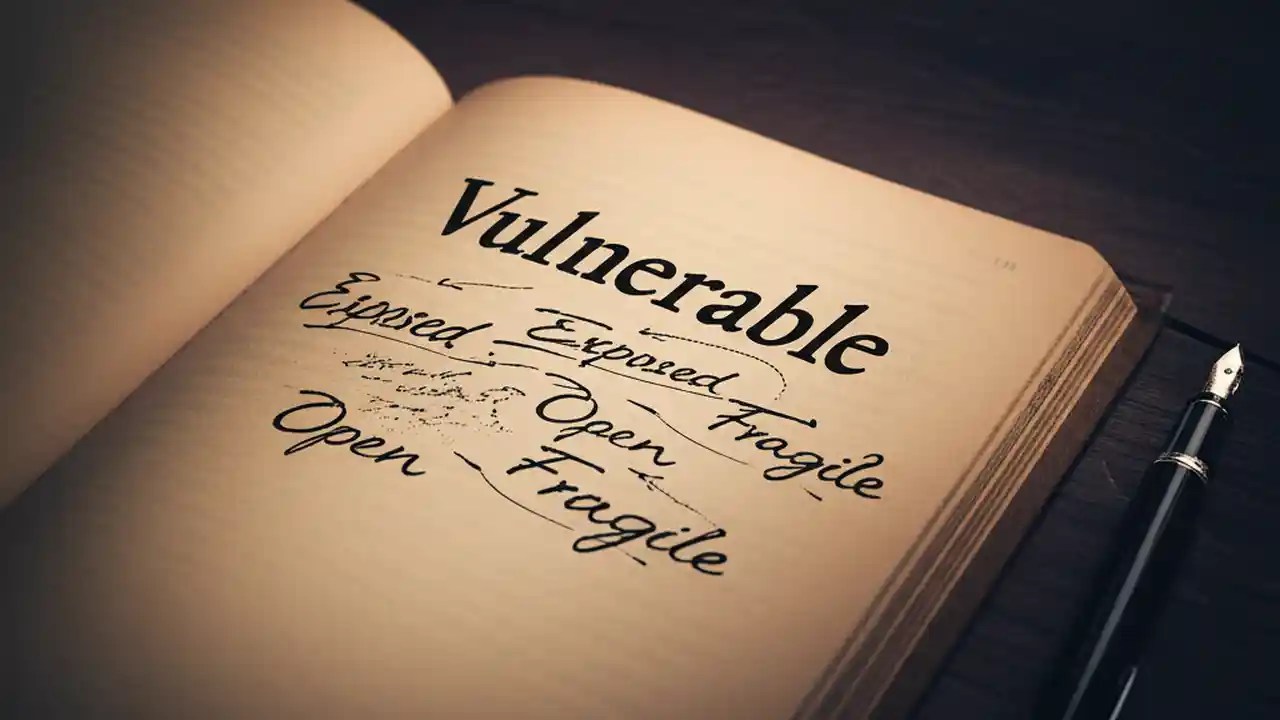 Vulnerable
Exposed Exposed Fragile
Open Open
Fragile